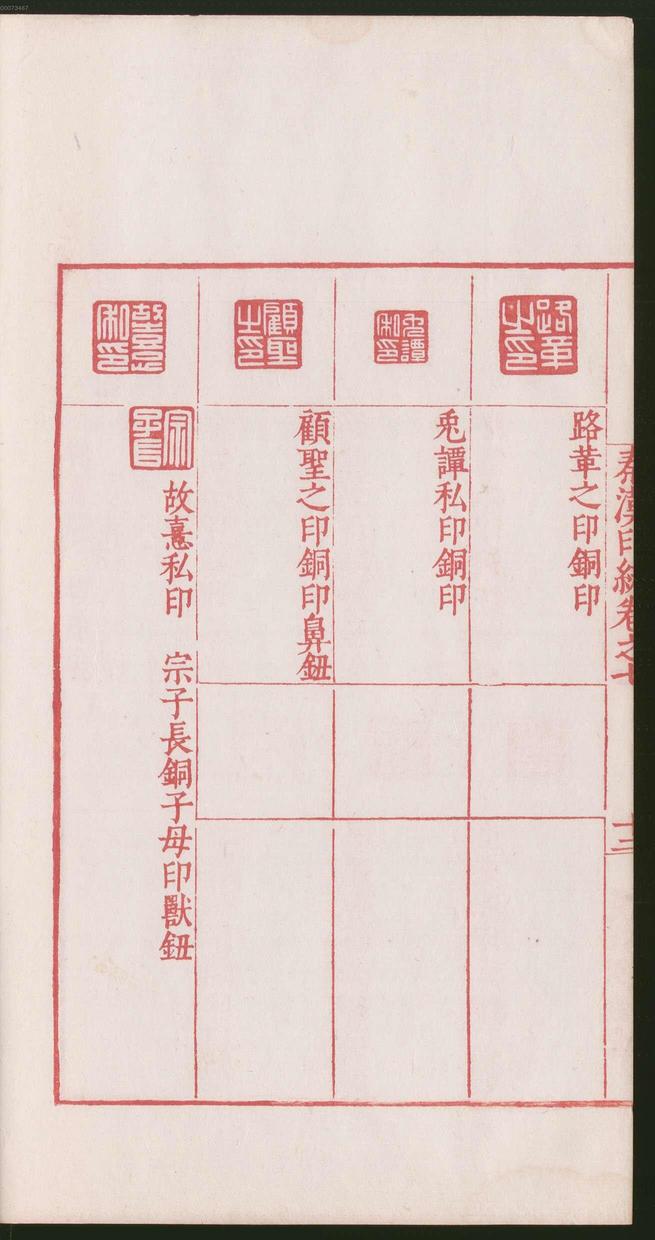 00073467
秦漢印統卷之七
十三
路䔈之印銅印
兎譚私印銅印
顧聖之印銅印鼻鈕
故憙私印 宗子長銅子母印獸鈕